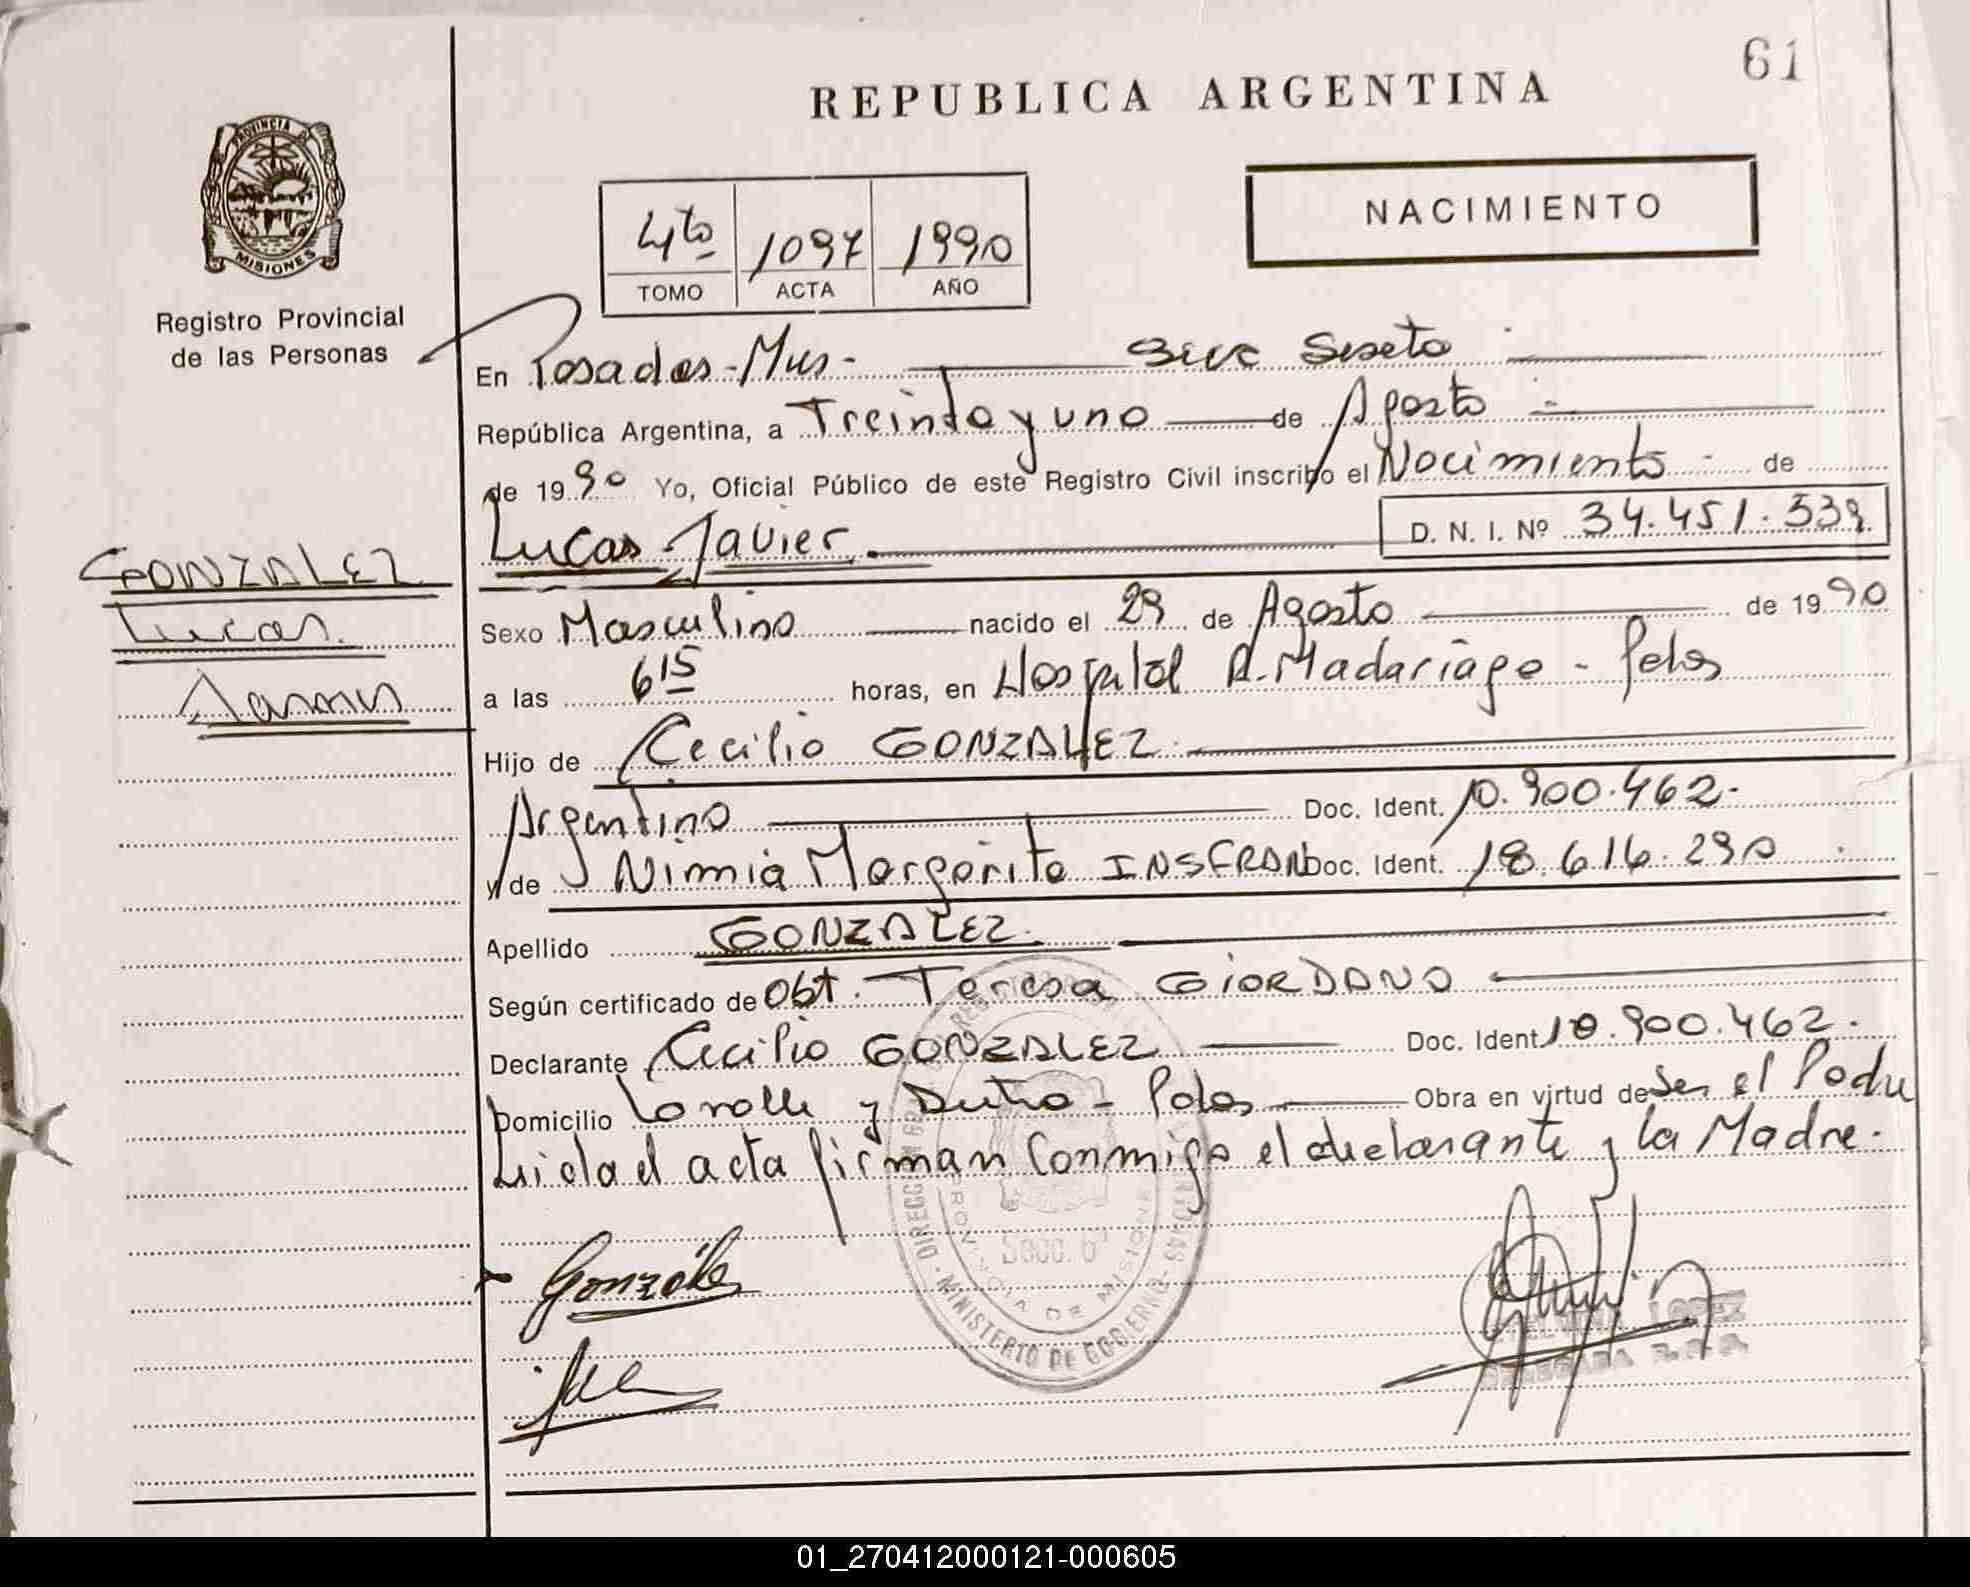 61
REPUBLICA ARGENTINA
PROVINCIA DE
MISIONES
Registro Provincial
de las Personas
4to 1097 1990
TOMO ACTA AÑO
NACIMIENTO
En Posadas-Mnes- Secc Sexta
República Argentina, a Treinta y uno de Agosto
de 1990 Yo, Oficial Público de este Registro Civil inscribo el Nacimiento - de
Lucas Javier D. N. I. Nº 34.451.539
GONZALEZ
Lucas
Javier
Sexo Masculino nacido el 29 de Agosto de 1990
a las 6 15 horas, en Hospital R. Madariaga - Pdas
Hijo de Cecilio GONZALEZ
Argentino Doc. Ident. 10.900.462.
y de Nimia Margarita INSFRAN Doc. Ident. 18.616.290
Apellido GONZALEZ
Según certificado de Obt. Teresa GIORDANO
Declarante Cecilio GONZALEZ Doc. Ident 10.900.462.
Domicilio y - Pdas Obra en virtud de Ser el Padre
Leida el acta firman conmigo el declarante y la Madre.
Gonzále
Secc. 6ª
PROVINCIA DE MISIONES
MINISTERIO DE GOBIERNO
LOPEZ
01_270412000121-000605